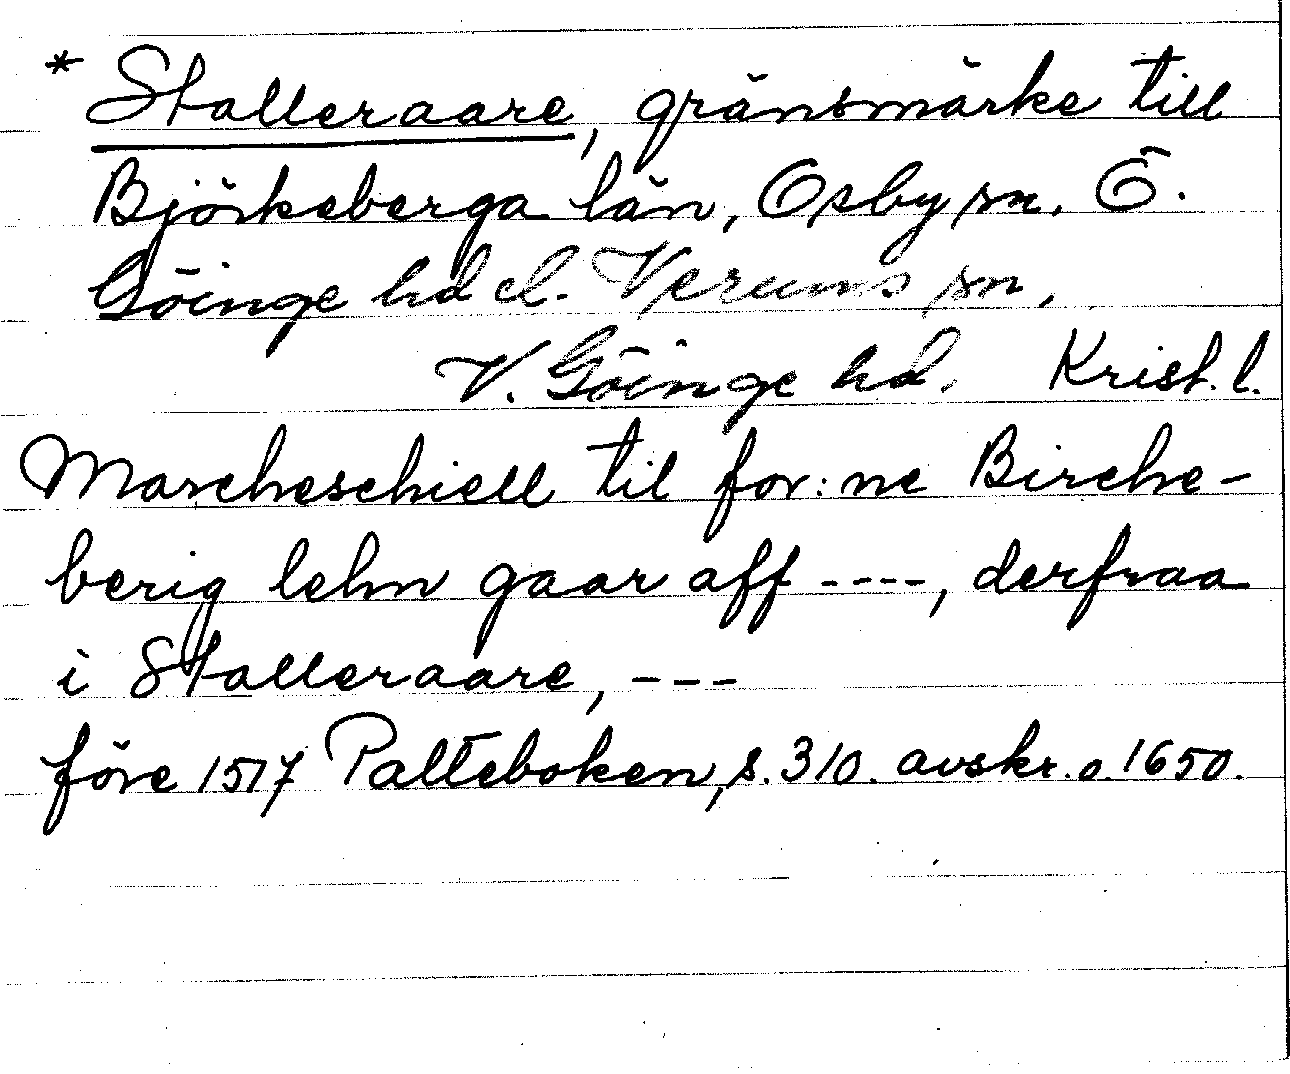 * Stalleraare, gränsmärke till
Björkeberga län, Osby sn. Ö.
Göinge hd el. Verums sn,
V. Göinge hd. Krist. l.
Marcheschiell til for: ne Birche-
berig lehn gaar aff ----, derfraa
i Stalleraare, ---
före 1517 Palteboken, s. 310. avskr. o. 1650.